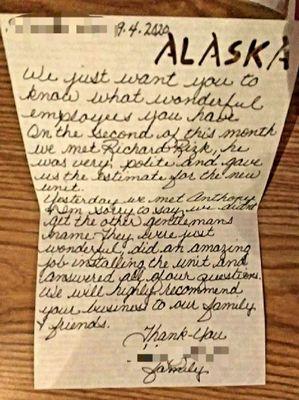 9.4.2020
ALASKA
We just want you to
know what wonderful
employees you have
On the second of this month
we met Richard Risk, he
was very, polite and gave
us the estimate for the new
unit.
Yesterday we met Anthony
I'm sorry to say we didn't
get the other gentlemans
name. They were just
wonderful, did an amazing
job installing the unit and
answered all of our questions.
We will highly recommend
your business to our family
& friends.
Thank-You
family